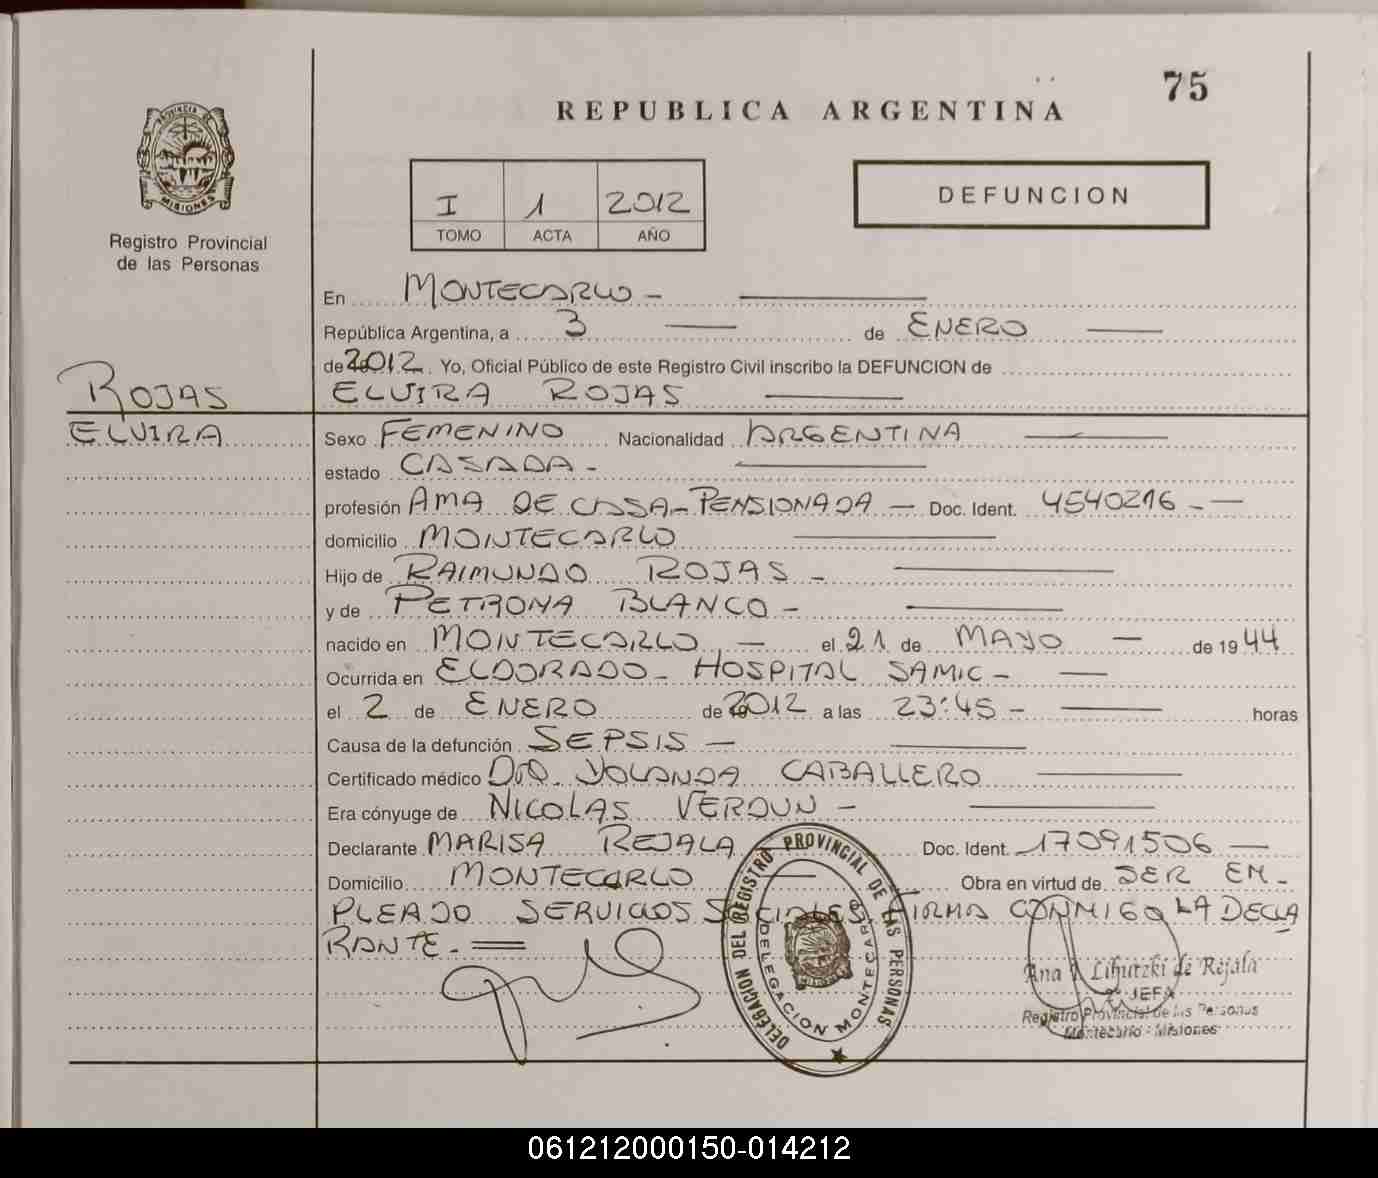 75
REPUBLICA ARGENTINA
PROVINCIA DE
MISIONES
Registro Provincial
de las Personas
I 1 2012
TOMO ACTA AÑO
DEFUNCION
En MONTECARLO -
República Argentina, a 3 de ENERO
de 2012. Yo, Oficial Público de este Registro Civil inscribo la DEFUNCION de
ROJAS
ELVIRA ROJAS
ELVIRA
Sexo FEMENINO Nacionalidad ARGENTINA
estado CASADA -
profesión AMA DE CASA - PENSIONADA - Doc. Ident. 4540216 -
domicilio MONTECARLO
Hijo de RAIMUNDO ROJAS -
y de PETRONA BLANCO -
nacido en MONTECARLO - el 21 de MAYO - de 1944
Ocurrida en ELDORADO - HOSPITAL SAMIC -
el 2 de ENERO de 2012 a las 23:45 - horas
Causa de la defunción SEPSIS -
Certificado médico DRA. YOLANDA CABALLERO
Era cónyuge de NICOLAS VERDUN -
Declarante MARISA REJALA Doc. Ident. 17091506 -
Domicilio MONTECARLO Obra en virtud de SER EM-
PLEADO SERVICIOS SOCIALES FIRMA CONMIGO LA DECLA
RANTE. =
DELEGACION DEL REGISTRO PROVINCIAL DE LAS PERSONAS
DELEGACION MONTECARLO
MISIONES
Ana Lihutzki de Rejala
JEFA
Registro Provincial de las Personas
Montecarlo - Misiones
061212000150-014212